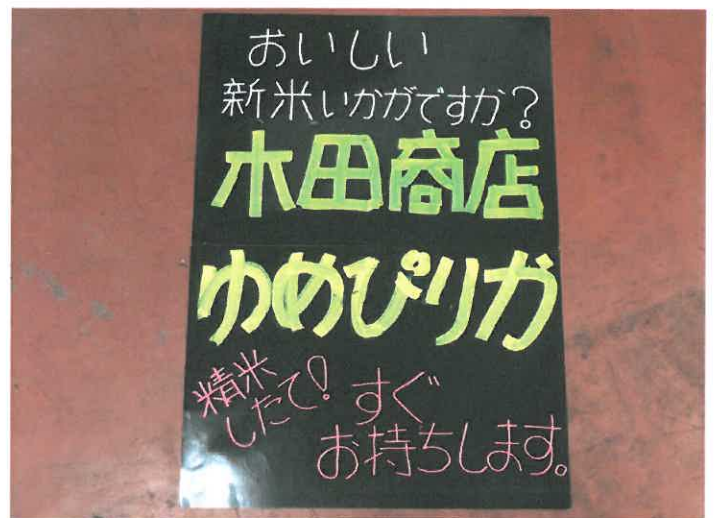 おいしい
新米いかがですか?
木田商店
ゆめぴりか
精米
したて!
すぐ
お持ちします。